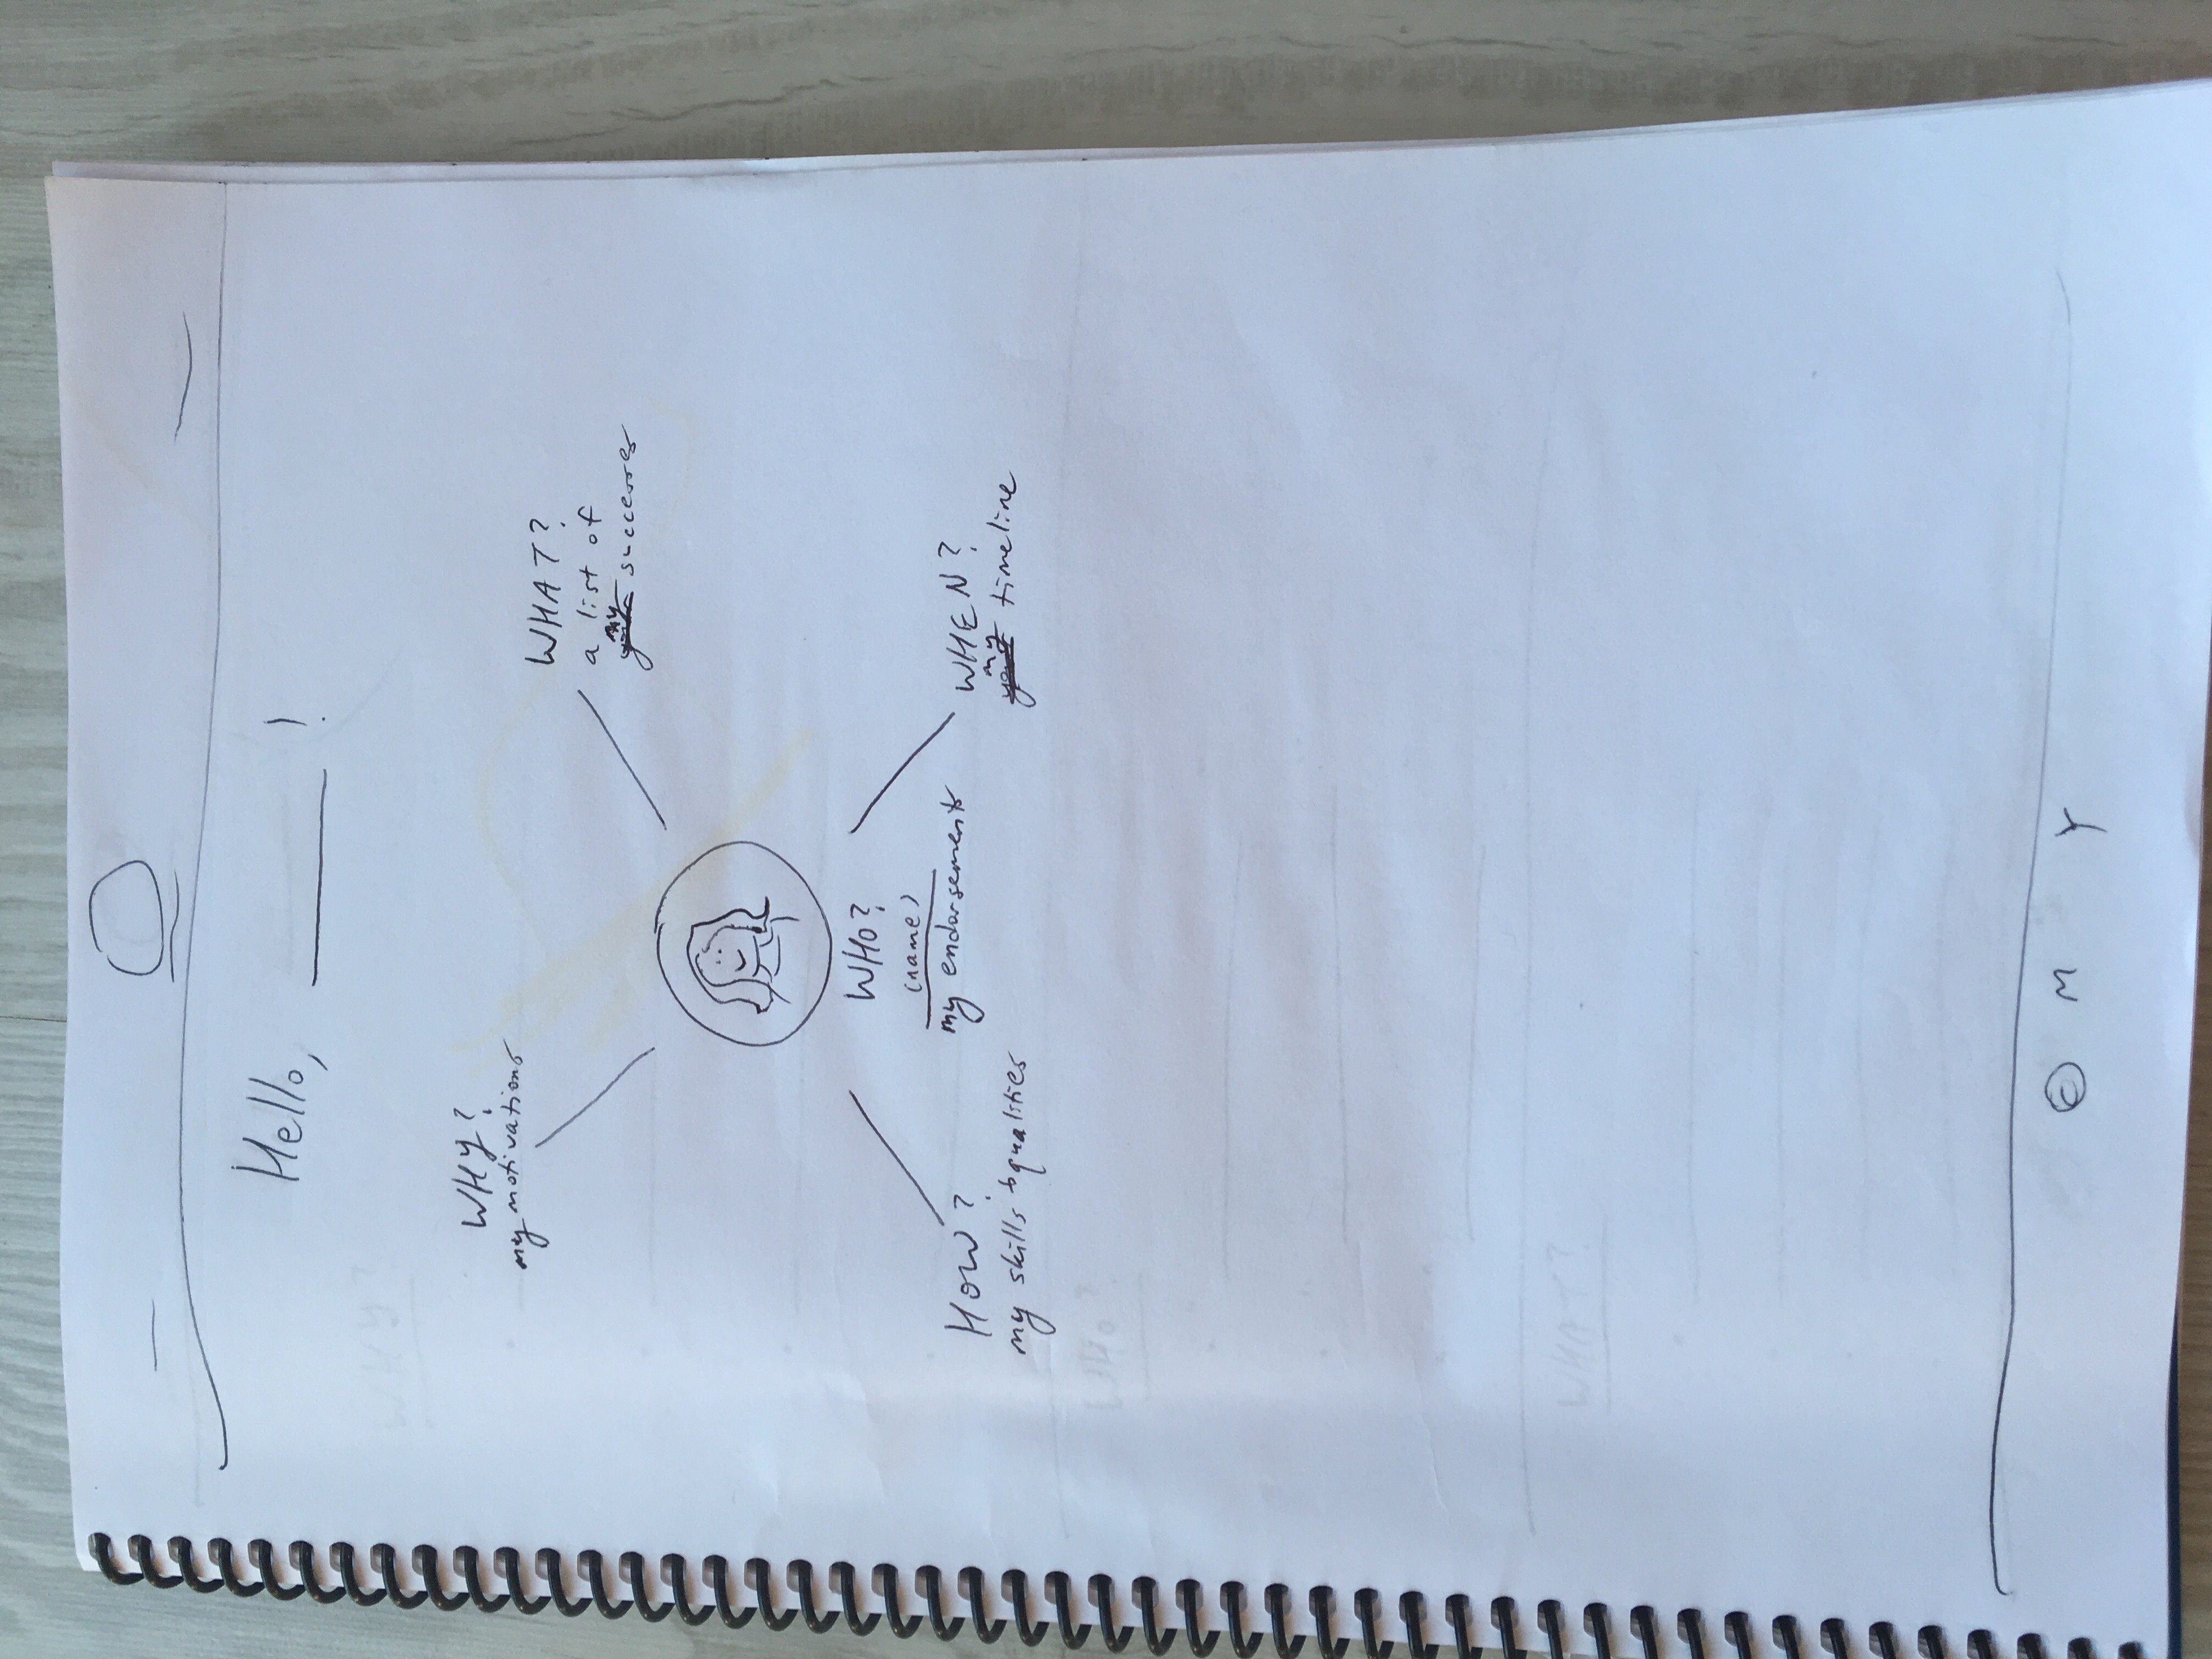 Hello, ______ !
WHY?
my motivations
WHAT?
a list of
my successes
WHO?
(name)
my endorsements
HOW?
my skills & qualities
WHEN?
my timeline
© M Y
WHY?
WHO?
WHAT?